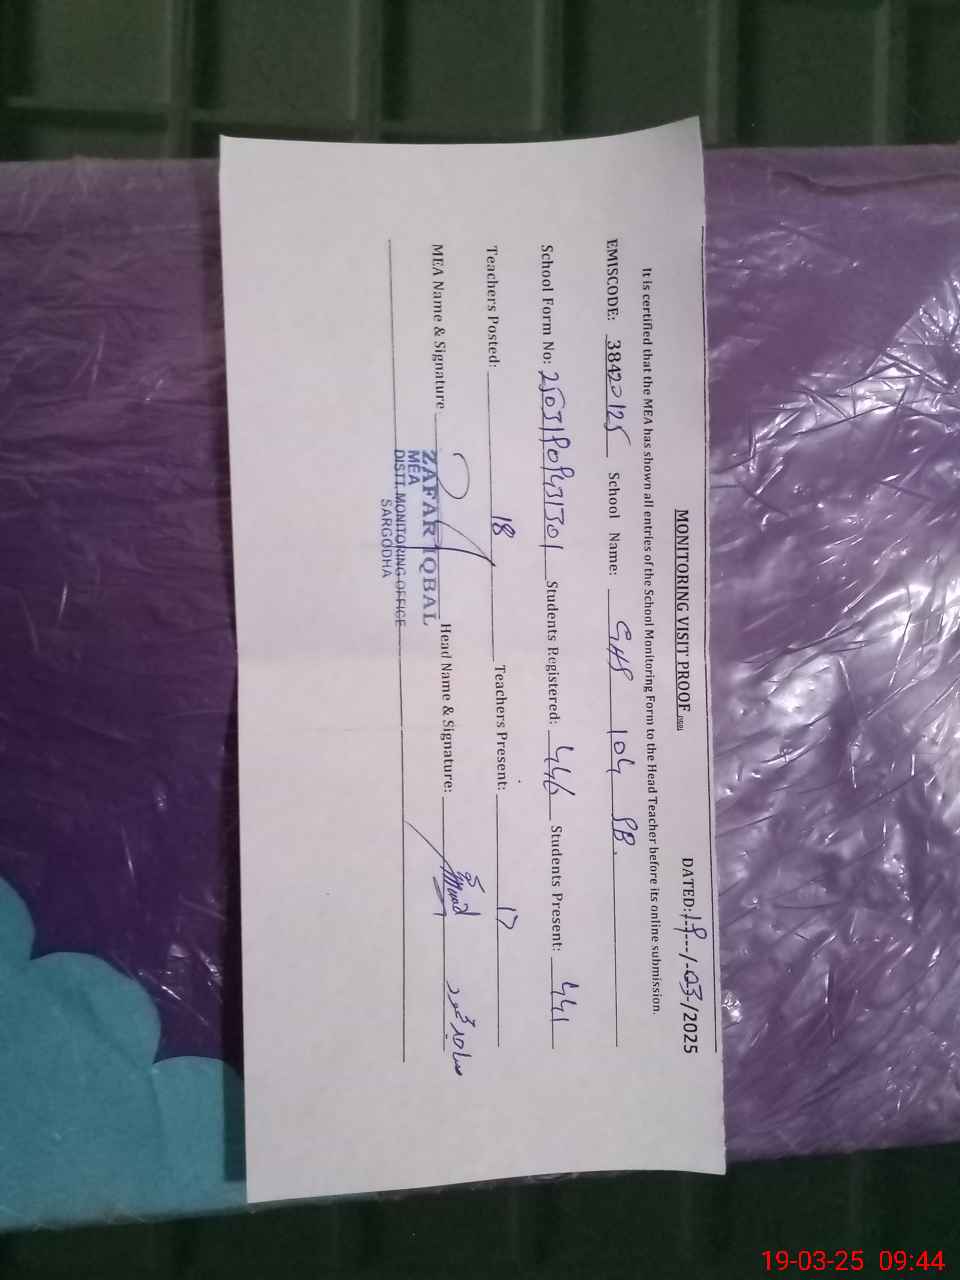 MONITORING VISIT PROOF DATED: 19/03/2025
It is certified that the MEA has shown all entries of the School Monitoring Form to the Head Teacher before its online submission.
EMISCODE: 38420125 School Name: GHS 104 SB.
School Form No: Students Registered: 446 Students Present: 441
Teachers Posted: 18 Teachers Present: 17
MEA Name & Signature Head Name & Signature:
ZAFAR IQBAL
MEA
DISTT. MONITORING OFFICE
SARGODHA
19-03-25 09:44